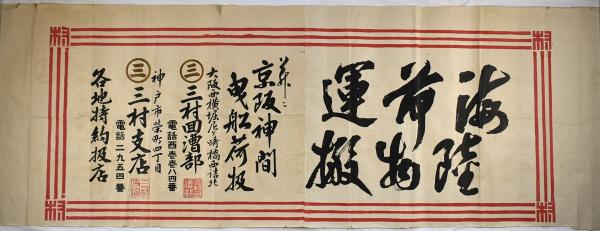 海陸
荷物
運搬
并ニ
京阪神間
曳船荷扱
大阪西横堀尼ヶ崎橋西詰北
㊂ 三村回漕部
電話西壱壱八四番
神戸市栄町四丁目
㊂ 三村支店
電話二九五四番
各地特約扱店